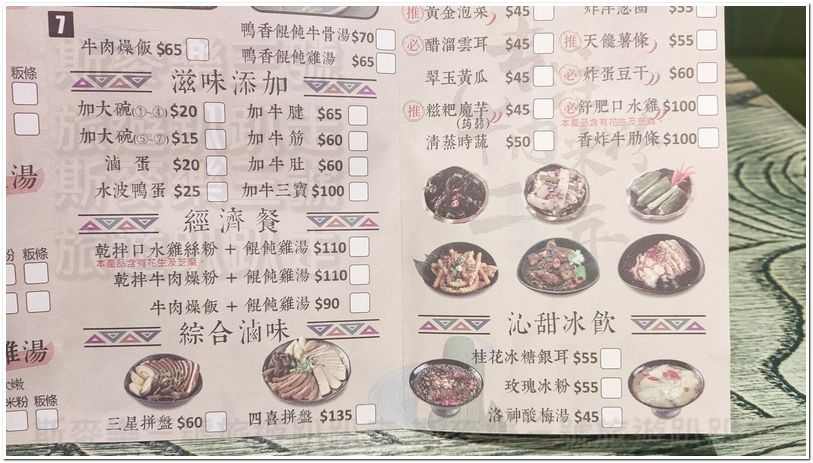 7
牛肉燥飯 $65
鴨香餛飩牛骨湯 $70
鴨香餛飩雞湯 $65
粄條
湯
粄條
雞湯
米粉 粄條
滋味添加
加大碗(①~④) $20
加大碗(⑤~⑦) $15
滷蛋 $20
水波鴨蛋 $25
加牛腱 $65
加牛筋 $60
加牛肚 $60
加牛三寶 $100
經濟餐
乾拌口水雞絲粉 + 餛飩雞湯 $110
本產品含有花生及芝麻。
乾拌牛肉燥粉 + 餛飩雞湯 $110
牛肉燥飯 + 餛飩雞湯 $90
綜合滷味
三星拼盤 $60
四喜拼盤 $135
推 黃金泡菜 $45
必 醋溜雲耳 $45
翠玉黃瓜 $45
推 糍粑魔芋 $45
(蒟蒻)
清蒸時蔬 $50
炸洋蔥圈 $55
推 天饑薯條 $55
必 炸蛋豆干 $60
必 舒肥口水雞 $100
本產品含有花生及芝麻。
香炸牛肋條 $100
沁甜冰飲
桂花冰糖銀耳 $55
玫瑰冰粉 $55
洛神酸梅湯 $45